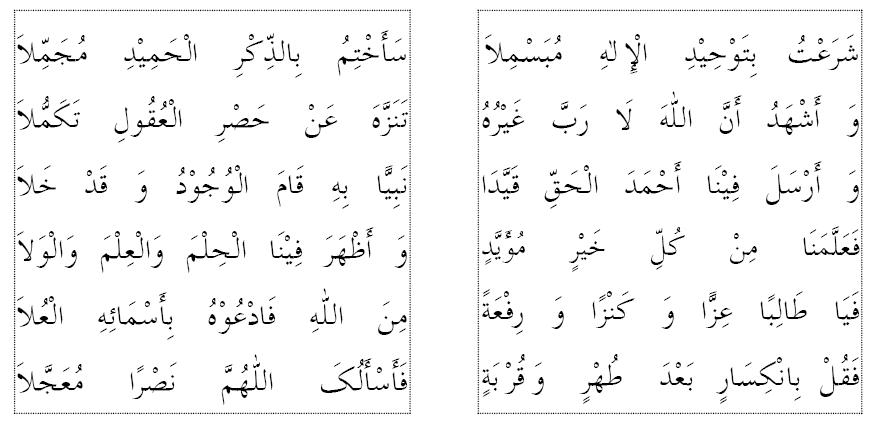 شَرَعْتُ بِتَوْحِيْدِ الْإِلٰهِ مُبَسْمِلاَ سَأَخْتِمُ بِالذِّكْرِ الْحَمِيْدِ مُجَمِّلاَ
وَ أَشْهَدُ أَنَّ اللّٰهَ لَا رَبَّ غَيْرُهُ تَنَزَّهَ عَنْ حَصْرِ الْعُقُولِ تَكَمُّلاَ
وَ أَرْسَلَ فِيْنَا أَحْمَدَ الْحَقِّ قَيَّدَا نَبِيًّا بِهِ قَامَ الْوُجُوْدُ وَ قَدْ خَلاَ
فَعَلَّمَنَا مِنْ كُلِّ خَيْرٍ مُؤَيَّدٍ وَ أَظْهَرَ فِيْنَا الْحِلْمَ وَالْعِلْمَ وَالْوَلاَ
فَيَا طَالِبًا عِزًّا وَ كَنْزًا وَ رِفْعَةً مِنَ اللّٰهِ فَادْعُوْهُ بِأَسْمَائِهِ الْعُلاَ
فَقُلْ بِانْكِسَارٍ بَعْدَ طُهْرٍ وَ قُرْبَةٍ فَأَسْأَلُکَ اللّٰهُمَّ نَصْرًا مُعَجَّلاَ